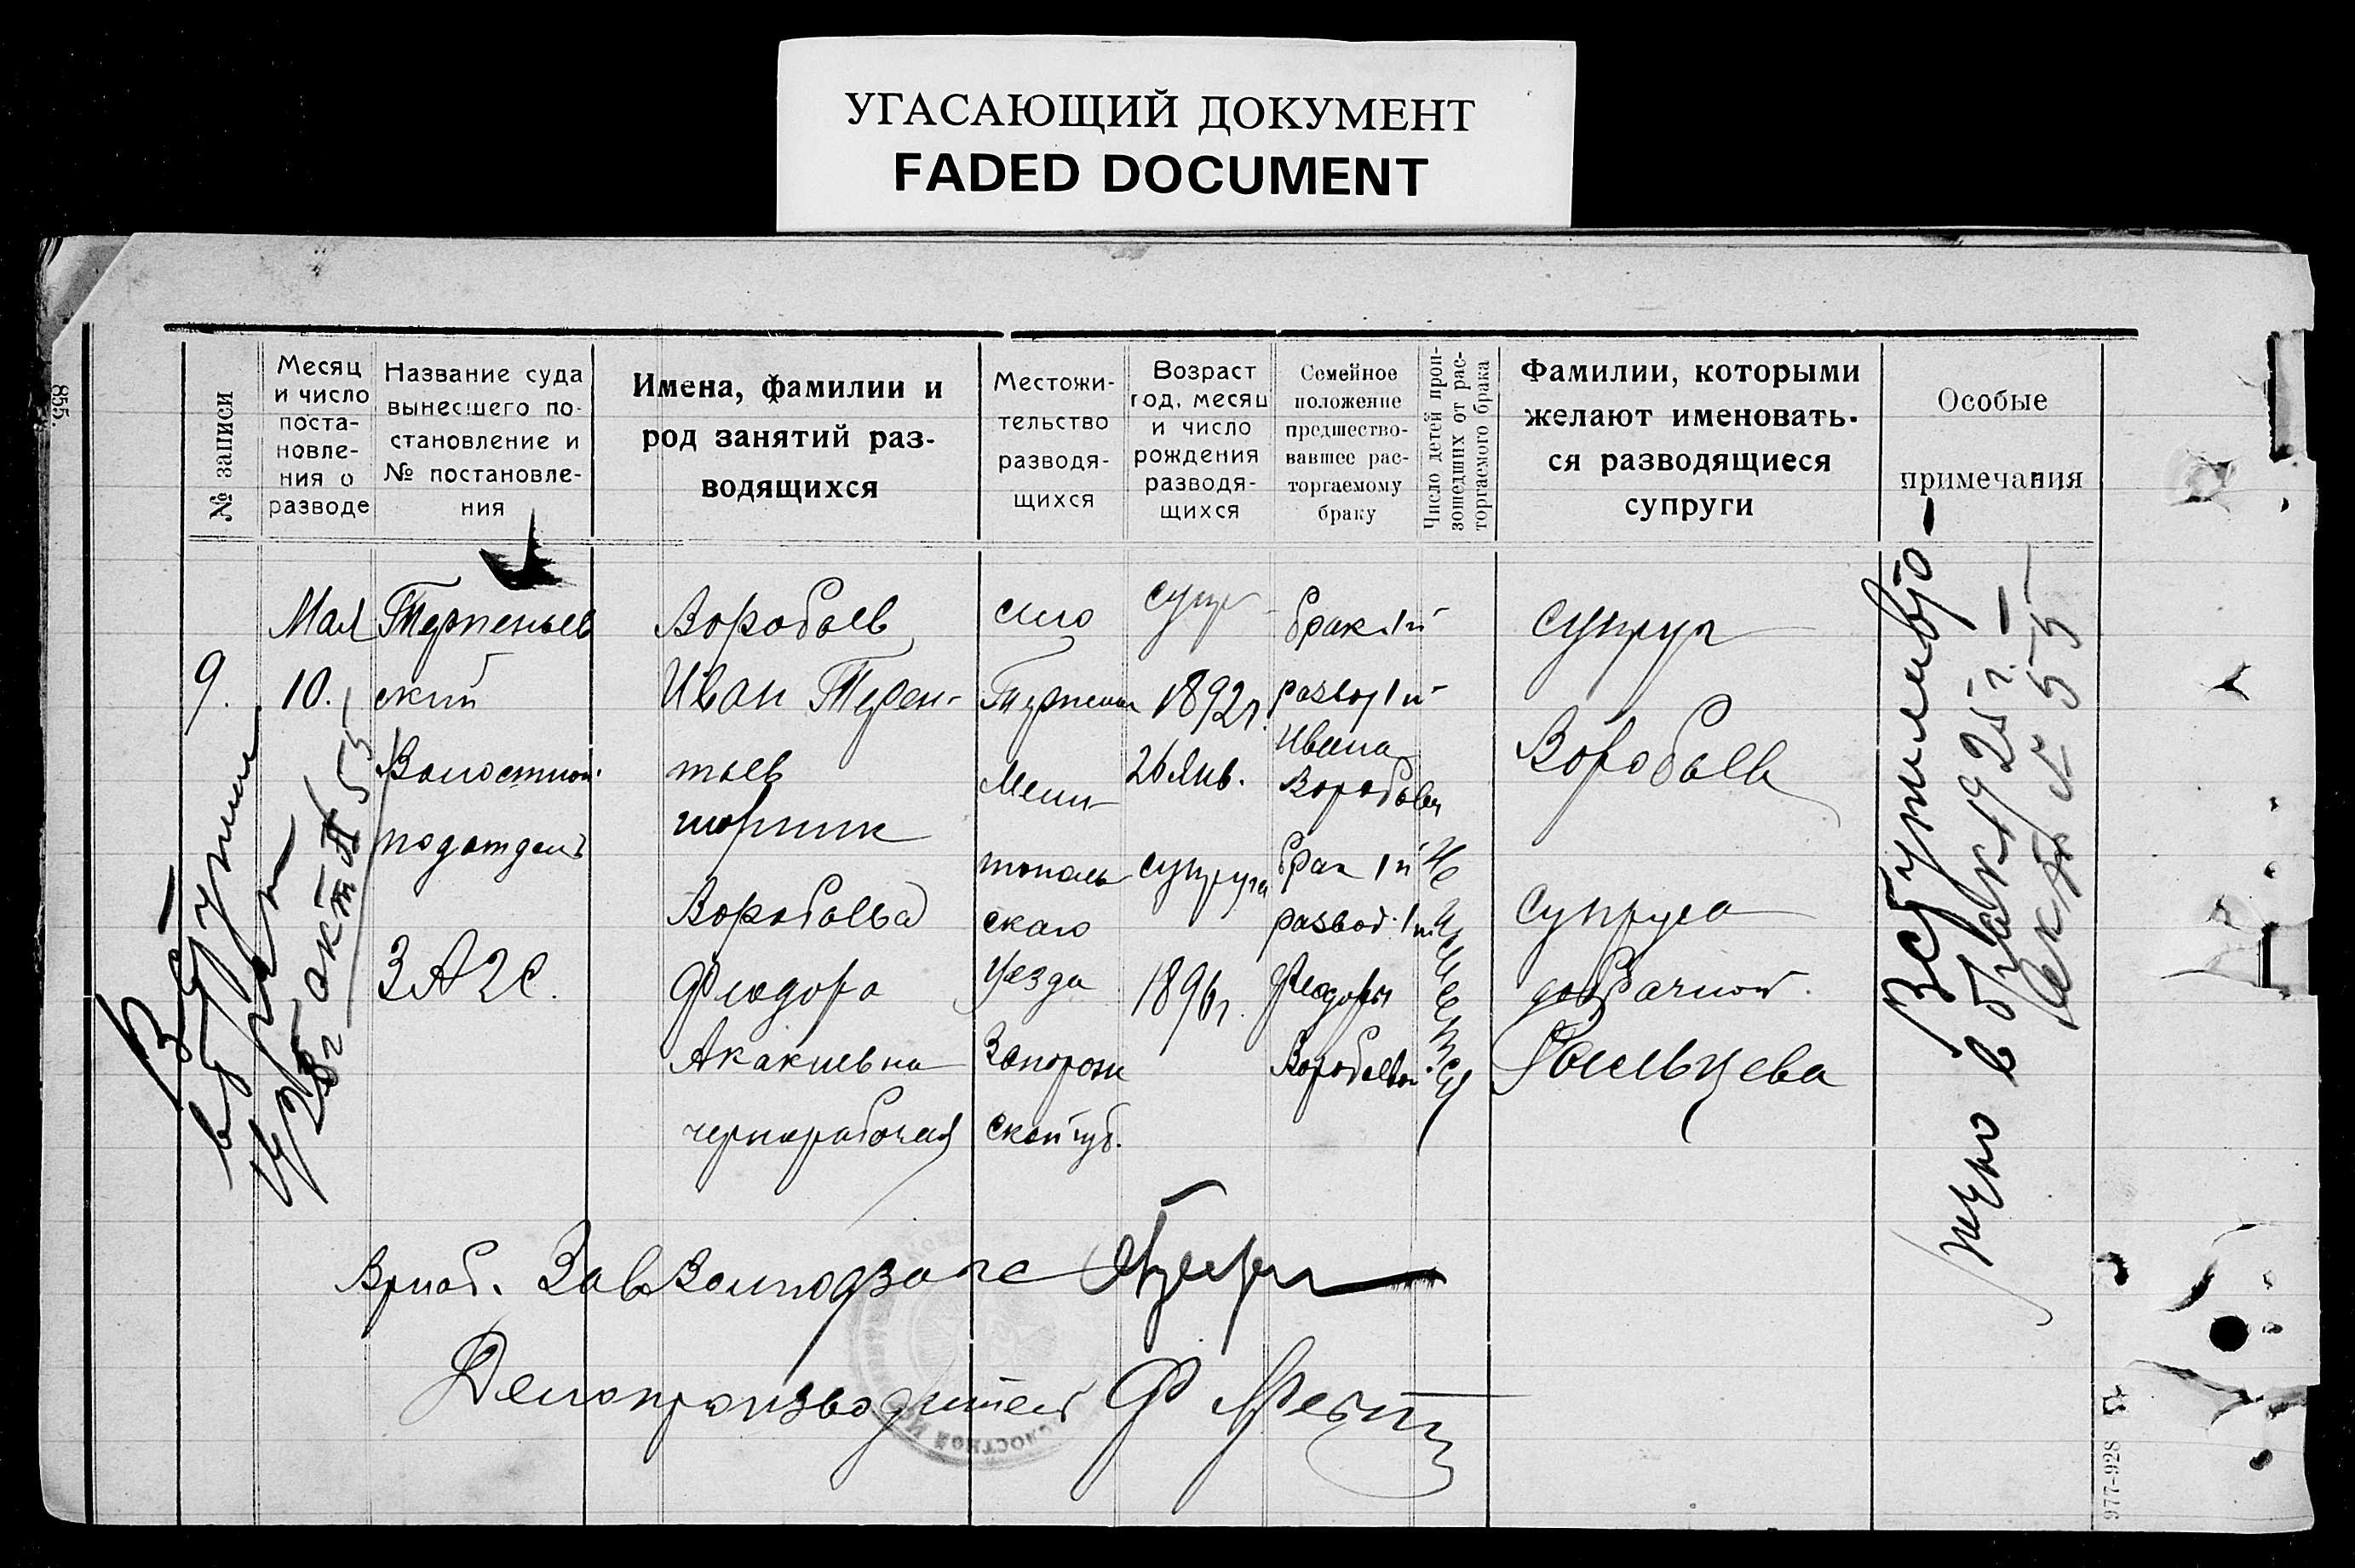 УГАСАЮЩИЙ ДОКУМЕНТ
FADED DOCUMENT
855.
№ записи
Месяц
и число
поста-
новле-
ния о
разводе
Название суда
вынесшего по-
становление и
№ постановле-
ния
Имена, фамилии и
род занятий раз-
водящихся
Местожи-
тельство
разводя-
щихся
Возраст
год, месяц
и число
рождения
разводя-
щихся
Семейное
положение
предшество-
вавшее рас-
торгаемому
браку
Число детей прои-
зошедших от рас-
торгаемого брака
Фамилии, которыми
желают именовать-
ся разводящиеся
супруги
Особые
примечания
9.
Мая
10.
Терпеньев
ский
Волостной
подотдел
ЗАГС.
Воробьев
Иван Терен-
тьев
Воробьева
Феодора
Акакиевна
чернорабочая
село
Терпение
Мели-
тополь
скаго
Уезда
Запорож
ской губ.
супр
1892г.
26 Янв.
супруга
1896г.
брак 1й
развод 1й
Ивана
Воробьева
брак 1й
развод. 1й
Феодоры
Воробьевой
Не
имеется
супруг
Воробьев
супруга
добрачной
Вступил
в брак
актом 55
Вступил вто-
рично в браке 1925 г.
акт № 55
Завволподзагс
Делопроизводитель Ф
977-928